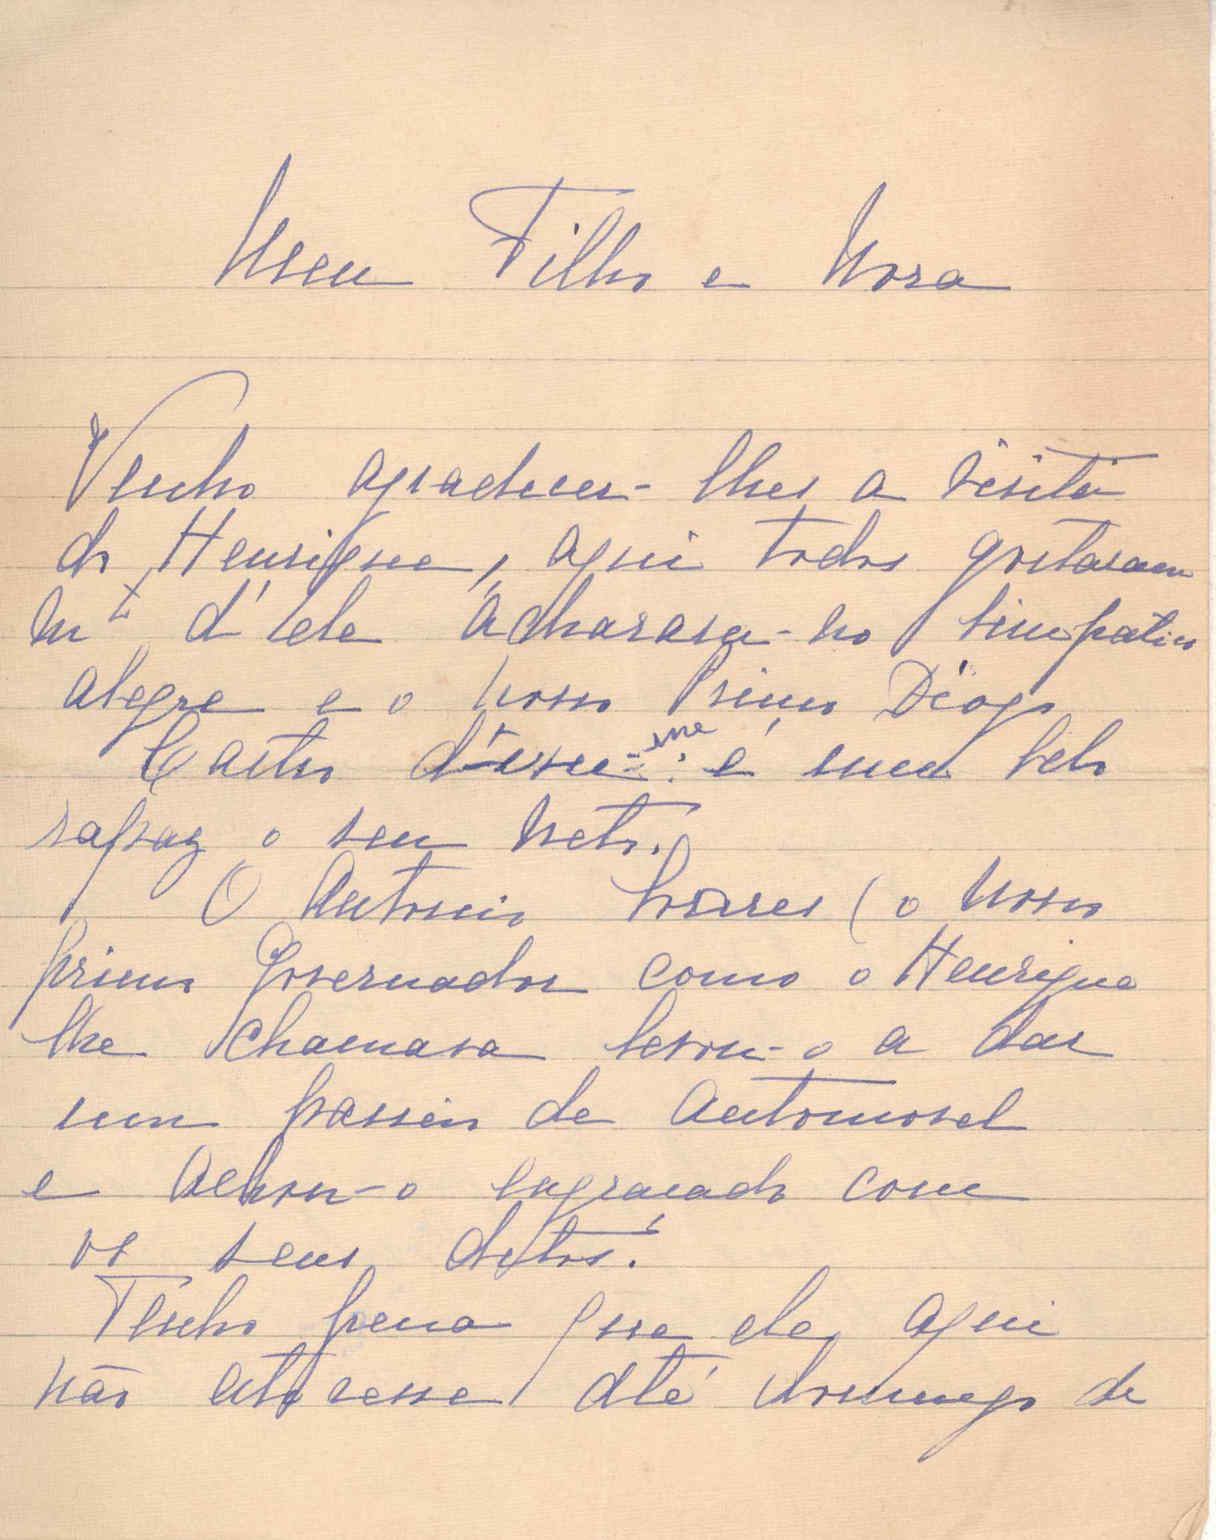 Meu Filho e Nora
Venho agradecer-lhes a visita
do Henrique, aqui todos gostaram
mto d'ele acharam-no simpatico
alegre e o nosso Primo Diogo
Castro disse-me: é um belo
rapaz o seu Neto.
O Antonio Soares (o nosso
primo Governador como o Henrique
lhe chamava levou-o a dar
um passeio de automovel
e achou-o engraçado com
os seus ditos.
Tenho pena que ele aqui
não estivesse até domingo de